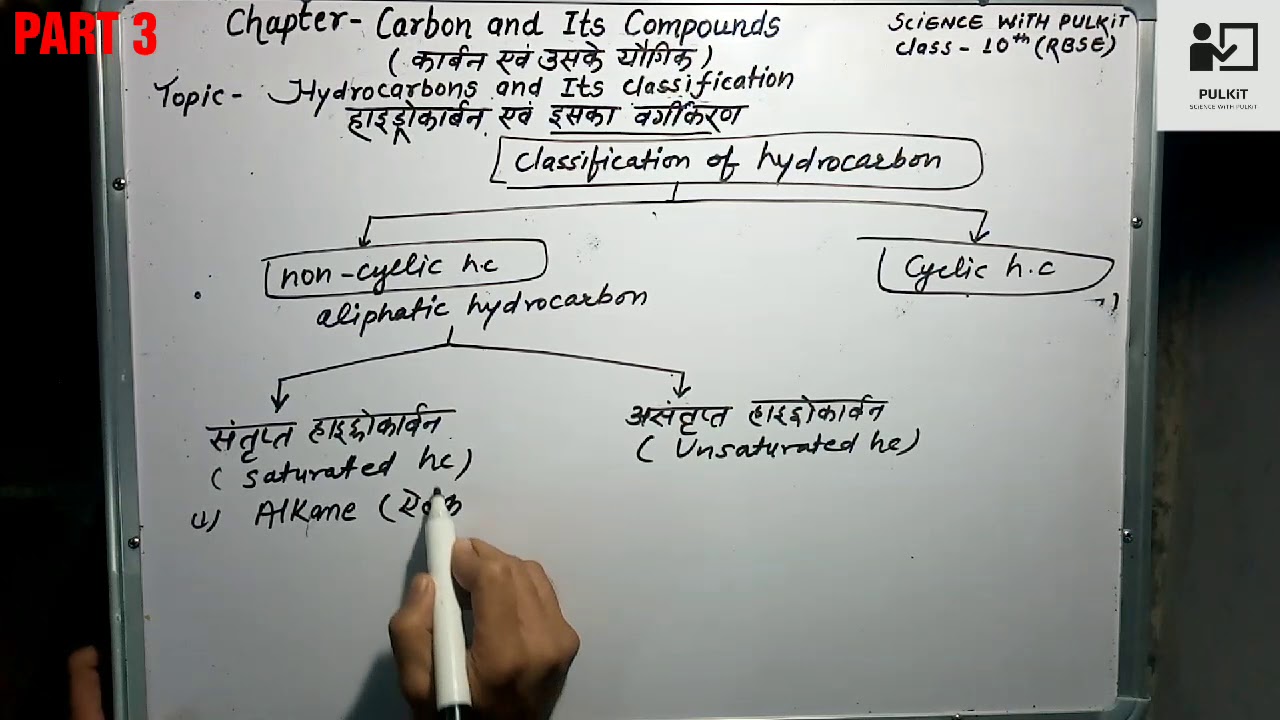 PART 3
Chapter- Carbon and Its Compounds
(कार्बन एवं उसके यौगिक)
SCIENCE WITH PULKIT
Class - 10th (RBSE)
PULKiT
SCIENCE WITH PULKIT
Topic- Hydrocarbons and Its classification
हाइड्रोकार्बन एवं इसका वर्गीकरण
Classification of hydrocarbon
non-cyclic h.c
Cyclic h.c
aliphatic hydrocarbon
संतृप्त हाइड्रोकार्बन
(Saturated hc)
असंतृप्त हाइड्रोकार्बन
(Unsaturated hc)
(1) Alkane (